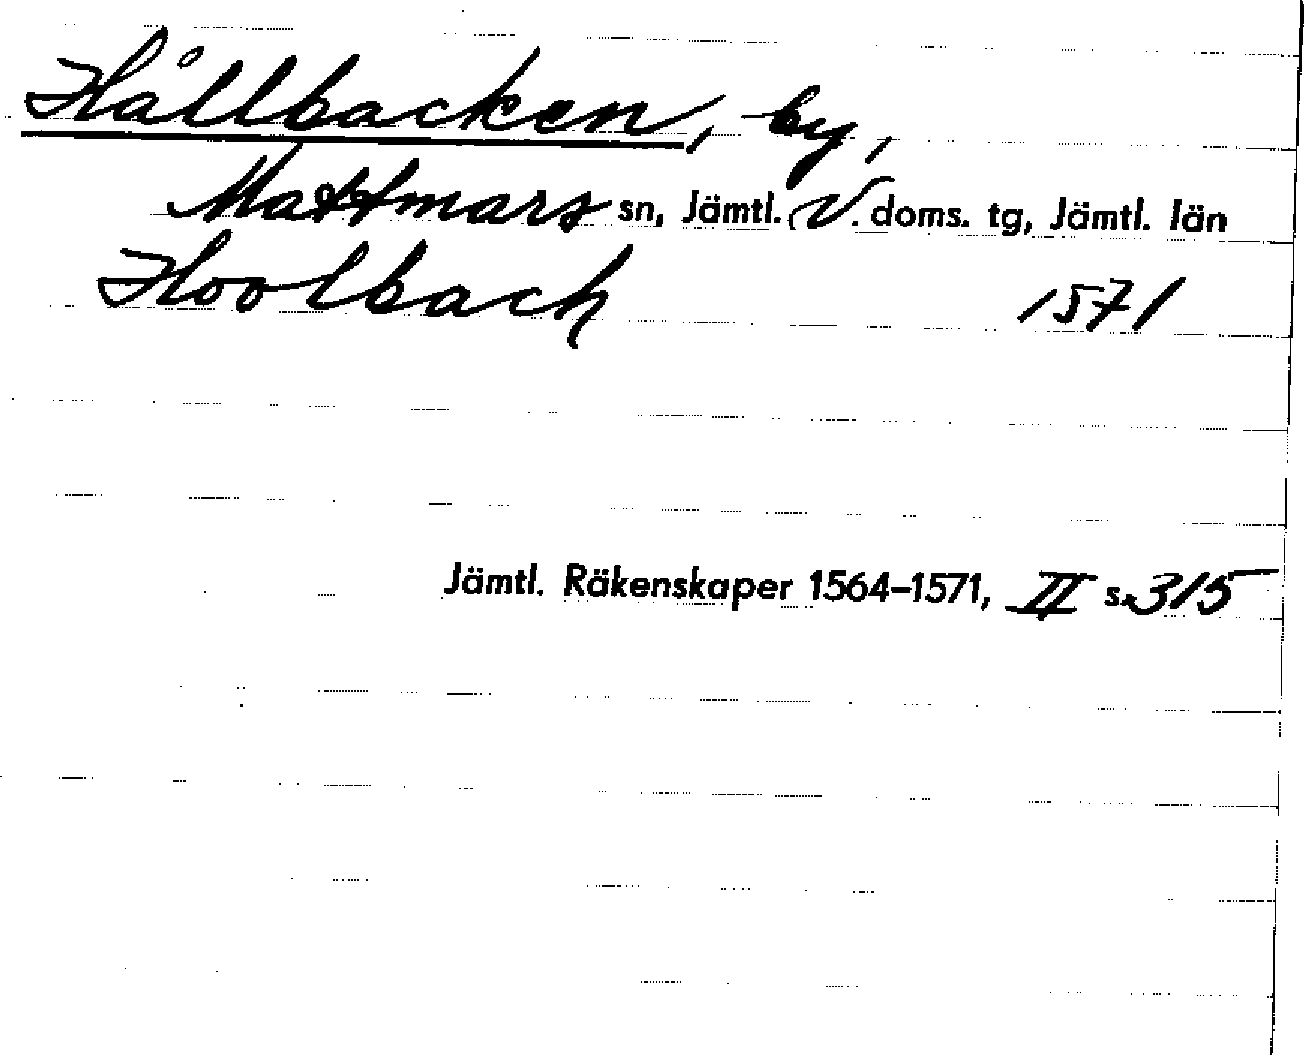 Hållbacken, by,
Mattmars sn, Jämtl. V. doms. tg, Jämtl. län
Hoolbach 1571
Jämtl. Räkenskaper 1564–1571, II s. 315